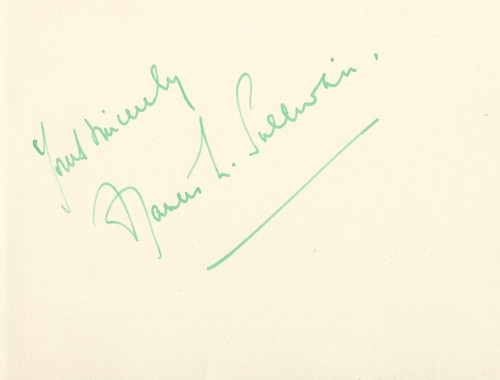 Yours sincerely
Francis L. Sullivan.